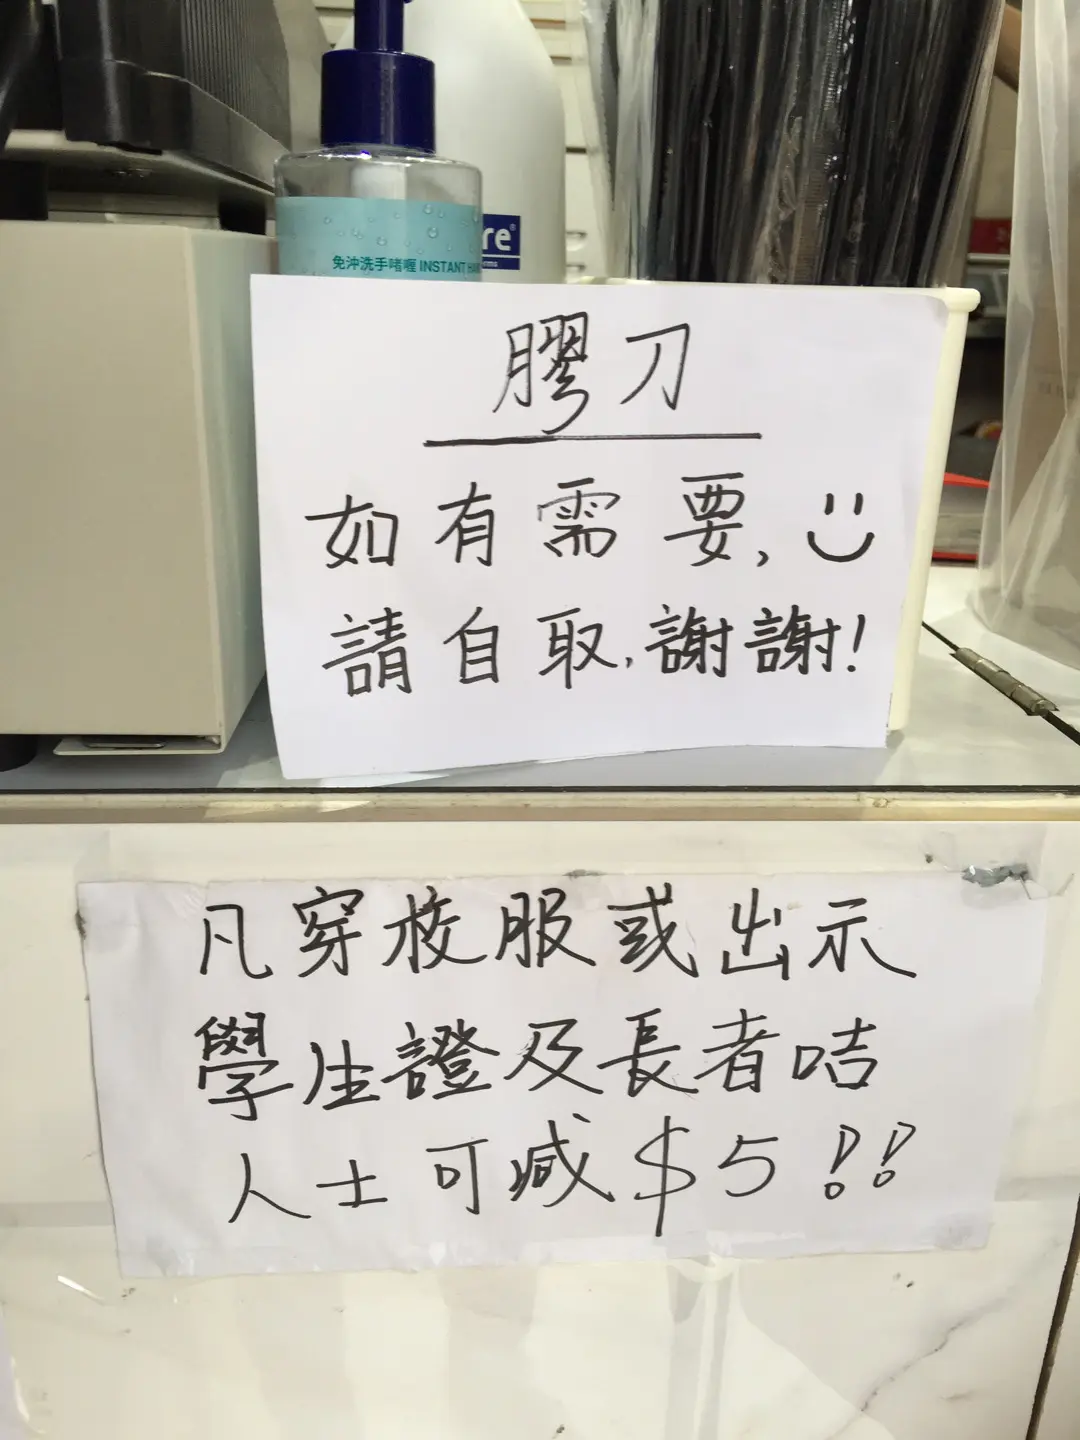 re®
免沖洗手啫喱 INSTANT HAN
膠刀
如有需要,
請自取,謝謝!
凡穿校服或出示
學生證及長者咭
人士可減$5!!